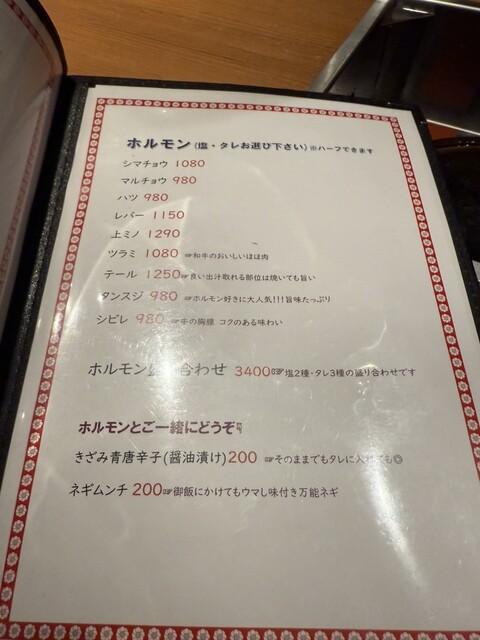 ホルモン(塩・タレお選び下さい)※ハーフできます
シマチョウ 1080
マルチョウ 980
ハツ 980
レバー 1150
上ミノ 1290
ツラミ 1080 ☞和牛のおいしいほほ肉
テール 1250☞良い出汁取れる部位は焼いても旨い
タンスジ 980 ☞ホルモン好きに大人気!!!旨味たっぷり
シビレ 980 ☞牛の胸腺 コクのある味わい
ホルモン 合わせ 3400☞塩2種・タレ3種の盛り合わせです
ホルモンとご一緒にどうぞ☟
きざみ青唐辛子(醤油漬け)200 ☞そのままでもタレに入れても◎
ネギムンチ 200☞御飯にかけてもウマし味付き万能ネギ